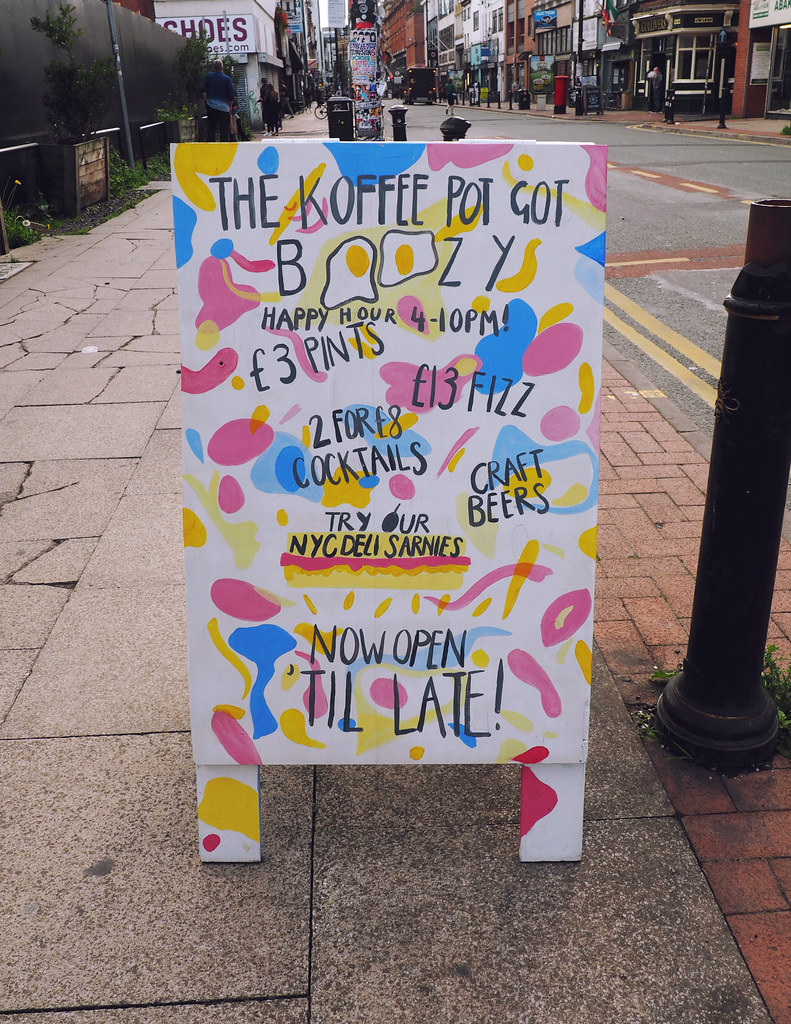 SHOES
es.com
THE KOFFEE POT GOT
BOOZY
HAPPY HOUR 4-10PM!
£3 PINTS
£13 FIZZ
2 FOR £8
COCKTAILS
CRAFT
BEERS
TRY OUR
NYC DELI SARNIES
NOW OPEN
'TIL LATE!